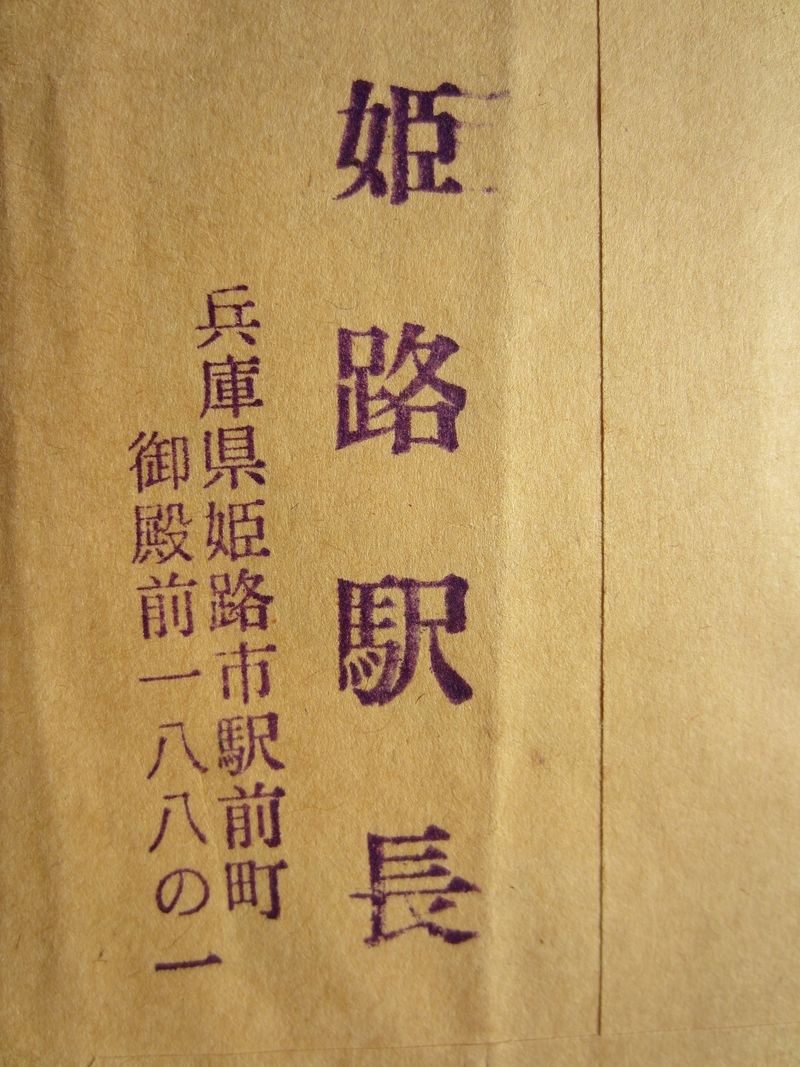 姫路駅長
兵庫県姫路市駅前町
御殿前一八八の一